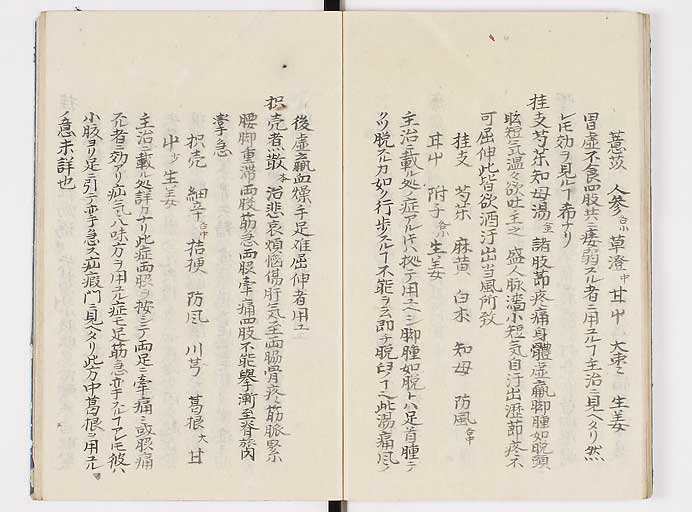 薏苡 人参 各小 草澄 中 甘中 大枣 生姜
胃虚不食四肢共ニ痿弱スル者ニ用ユルヿ主治ニ見ヘタリ然
レモ効ヲ見ルヿ希ナリ
桂支芍薬知母湯 諸肢節疼痛身體虚羸脚腫如脱頭
眩短气温々欲吐主之 盛人脉濇小短气自汗出歴節疼不
可屈伸此皆飲酒汗出当風所致
桂支 芍薬 麻黄 白朮 知母 防風 各中
耳中 附子 各小 生姜
主治ニ載ル処ノ症アルモハ拠テ用ユヘシ脚腫如脱トハ足首腫テ
ヌケ脱スルカ如ク行歩スルヿ不能ヲ云即チ脱臼
此湯痛風ノ
後虚羸血燥手足難屈伸者用ユ
枳壳煮散 本 治悲哀煩悩傷肝气至両脇骨疼筋脈緊
腰脚重滞両股筋急両脇牽痛四肢不能舉漸至脊膂
攣急
枳壳 細辛 各中 桔梗 防風 川芎 葛根 大 甘
中 生姜
主治ニ載ル処詳カナリ此症両脇ヲ按シテ両足ニ牽痛シ或脇痛
者ニ効アリ疝气ニ八味方ヲ用ユル症モ足筋急牽スルヿアレモ彼ハ
小肢ヨリ足ニ引テ牽急ス疝瘕門ニ見ヘタリ此方中葛根ヲ用ユル
ノ意未詳也